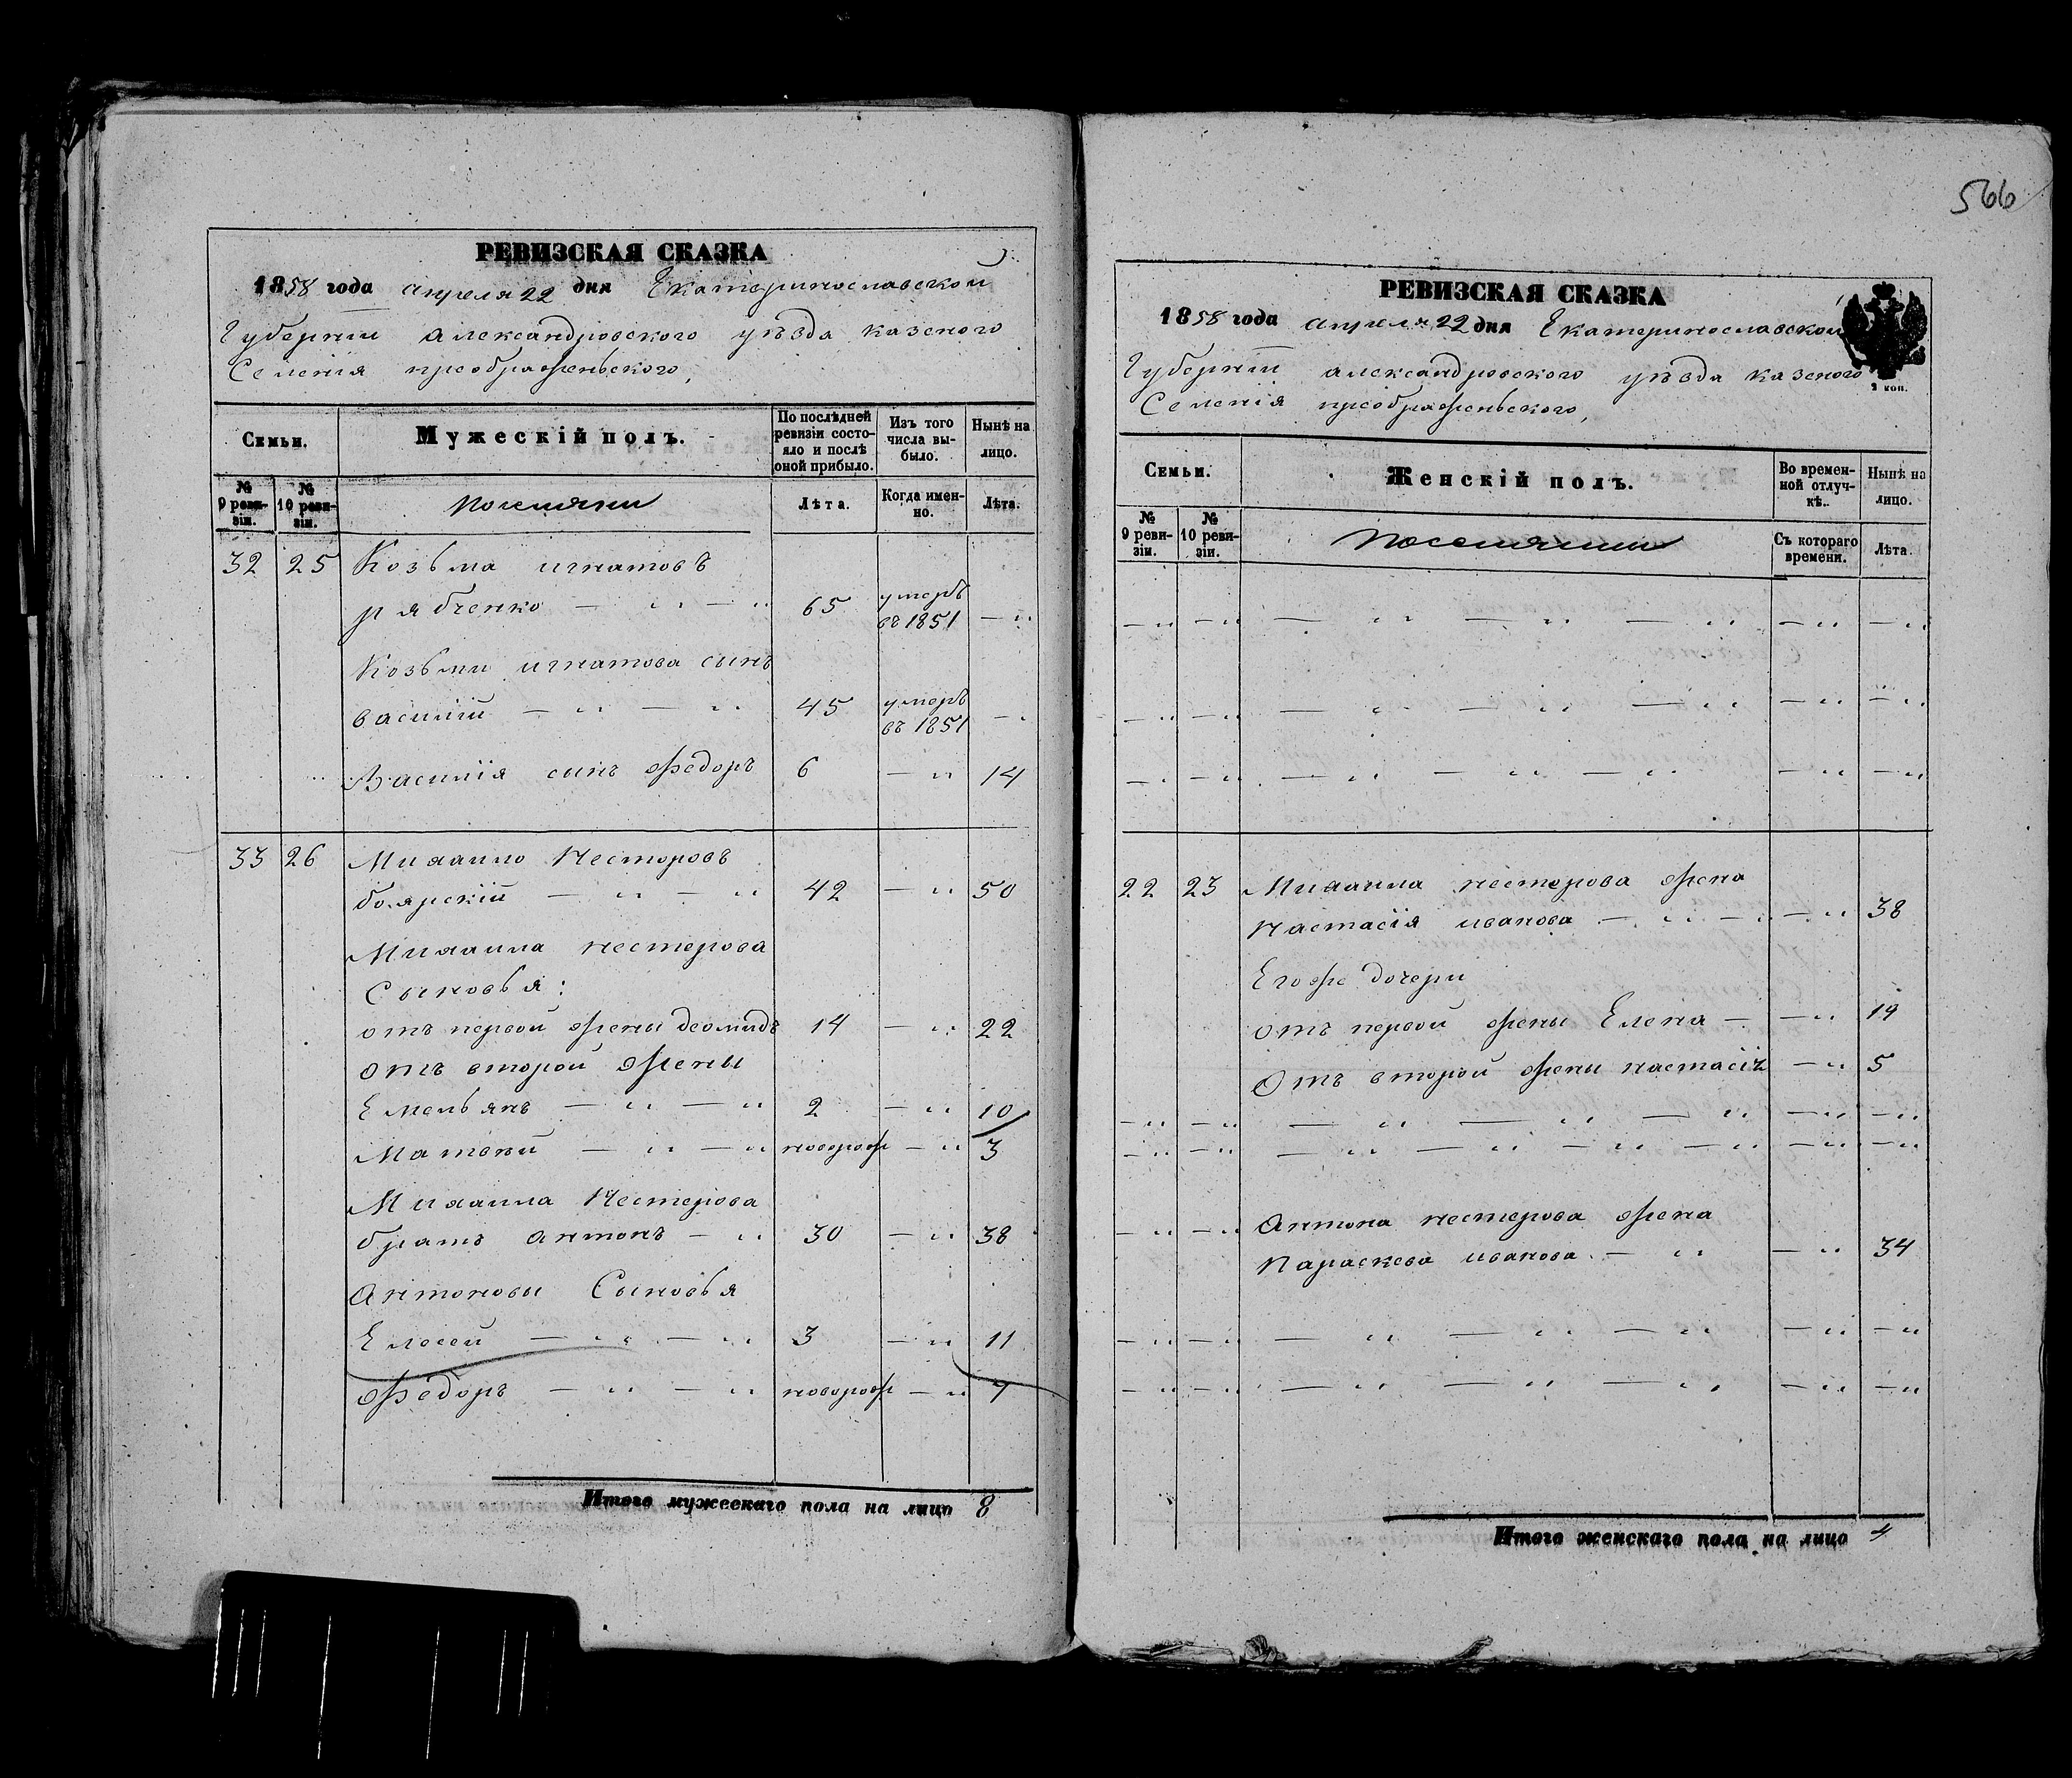 566
РЕВИЗСКАЯ СКАЗКА
1858 года апреля 22 дня Екатеринославской
Губерніи александровского уѣзда казеного
Селенія преображеньского,
Семьи. Мужескій полъ. По послѣдней ревизіи состояло и послѣ оной прибыло. Изъ того числа выбыло. Нынѣ на лицо.
№ 9 ревизіи. № 10 ревизіи. поселяни Лѣта. Когда именно. Лѣта.
32 25 Козьма игнатовъ
рябченко — " — " 65 умеръ въ 1851 — "
Козьми игнатова сынъ
василій — " — " 45 умеръ въ 1851 — "
Василія сынъ Федоръ 6 — " 14
33 26 Михаило Несторовъ
боярскій — " — " 42 — " 50
Михаила нестерова
Сыновья:
отъ первой жены деомидъ 14 — " 22
отъ второй жены
Емельянъ — " — " 2 — " 10
Матвѣй — " — " новорож — " 3
Михаила Нестерова
братъ антонъ — " 30 — " 38
антоновы Сыновья
Елесей — " — " 3 — " 11
Федоръ — " — " новорож — " 7
Итого мужескаго пола на лицо 8
РЕВИЗСКАЯ СКАЗКА
1858 года апреля 22 дня Екатеринославской
Губерніи александровского уѣзда казеного
2 коп.
Селенія преображеньского,
Семьи. Женскій полъ. Во временной отлучкѣ. Нынѣ на лицо.
№ 9 ревизіи. № 10 ревизіи. Съ котораго времени. Лѣта.
— " — " — " — " — " — " — "
— " — " — " — " — " — " — "
— " — " — " — " — " — " — "
22 23 Михаила нестерова жена
Настасія иванова — " — " — " 38
Егоже дочери
отъ первой жены Елена — — " 19
Отъ второй жены настасія — " 5
— " — " — " — " — " — " — "
— " — " — " — " — " — " — " — "
— " — " антона нестерова жена
Параскева иванова — " — " 34
— " — " — " — " — " — " — "
— " — " — " — " — " — " — "
Итого женскаго пола на лицо 4